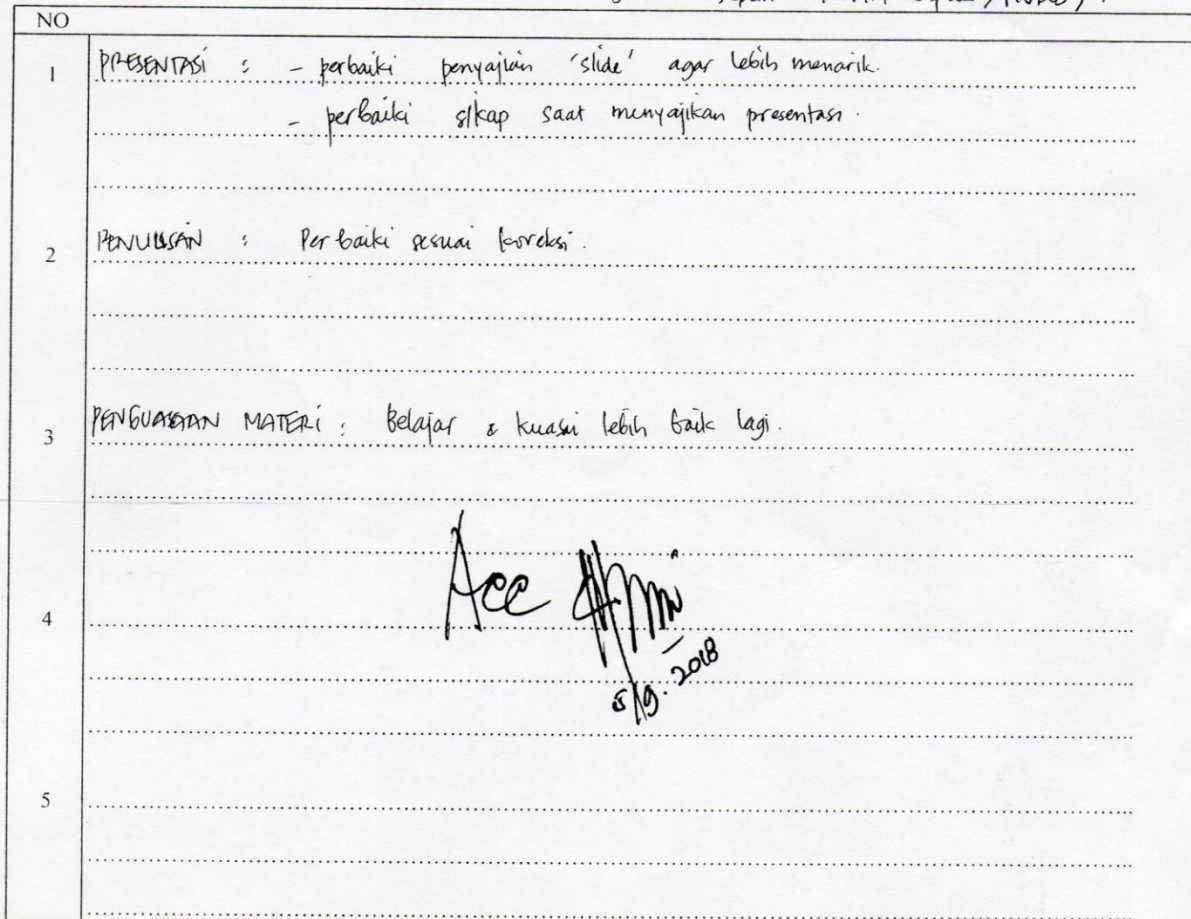 NO
1 PRESENTASI : - perbaiki penyajian 'slide' agar lebih menarik.
- perbaiki sikap saat menyajikan presentasi.
2 PENULISAN : Perbaiki sesuai koreksi.
3 PENGUASAAN MATERI : Belajar & kuasai lebih baik lagi.
Acc
4
5/9. 2018
5